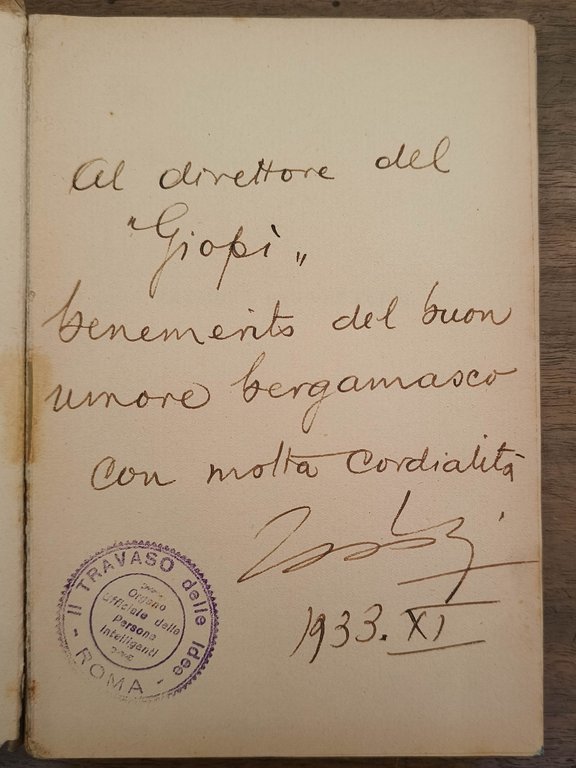 Al direttore del
"Giopì„
benemerito del buon
umore bergamasco
con molta cordialità
1933. XI
Il TRAVASO delle Idee
- ROMA -
Organo
Ufficiale delle
Persone
Intelligenti